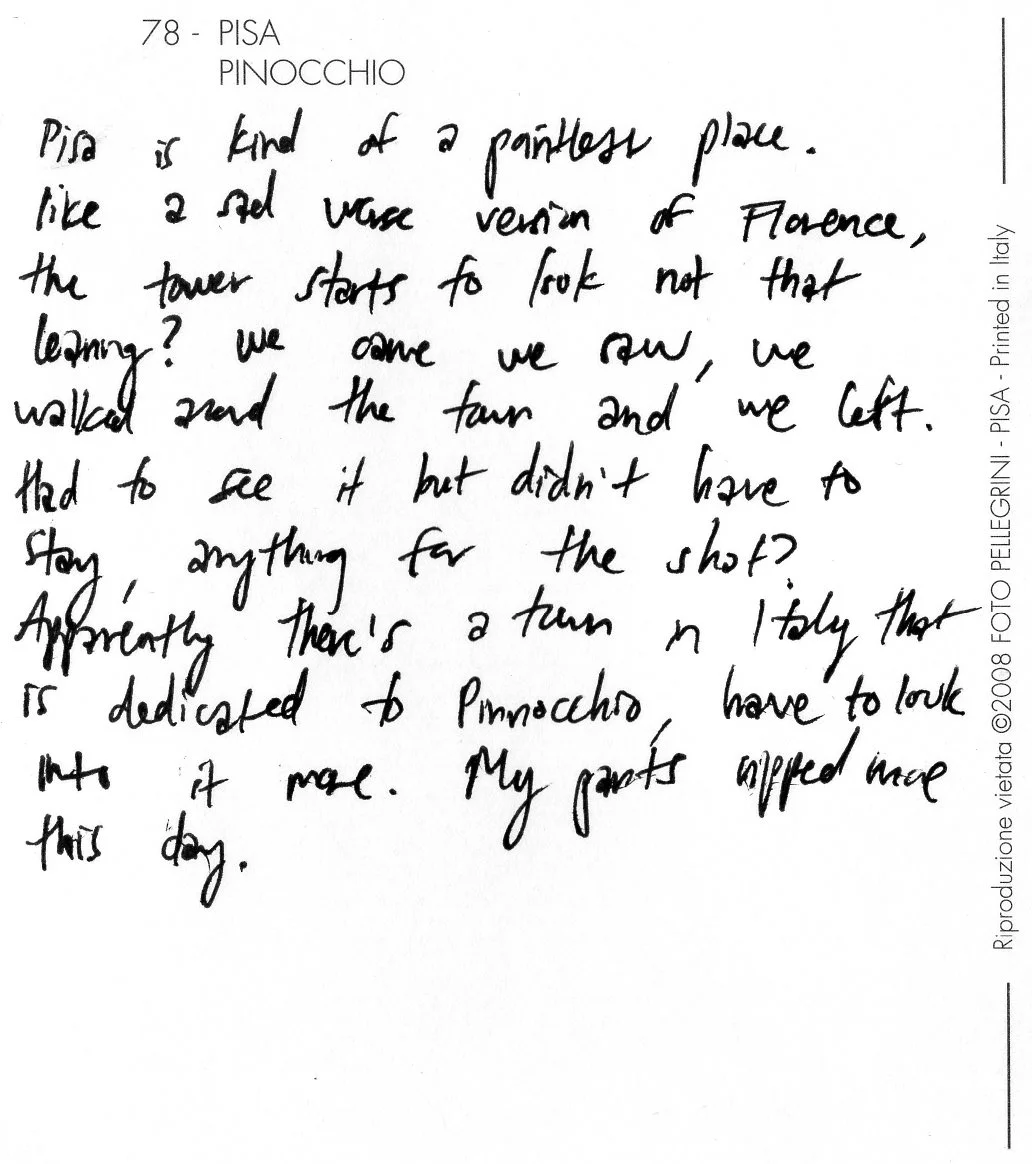 78 - PISA
PINOCCHIO
Pisa is kind of a pointless place.
like a sad worse version of Florence,
the tower starts to look not that
leaning? we came we saw, we
walked around the town and we left.
Had to see it but didn't have to
stay, anything for the shot?
Apparently there's a town in Italy that
is dedicated to Pinnocchio, have to look
into it more. My pants ripped more
this day.
Riproduzione vietata ©2008 FOTO PELLEGRINI - PISA - Printed in Italy